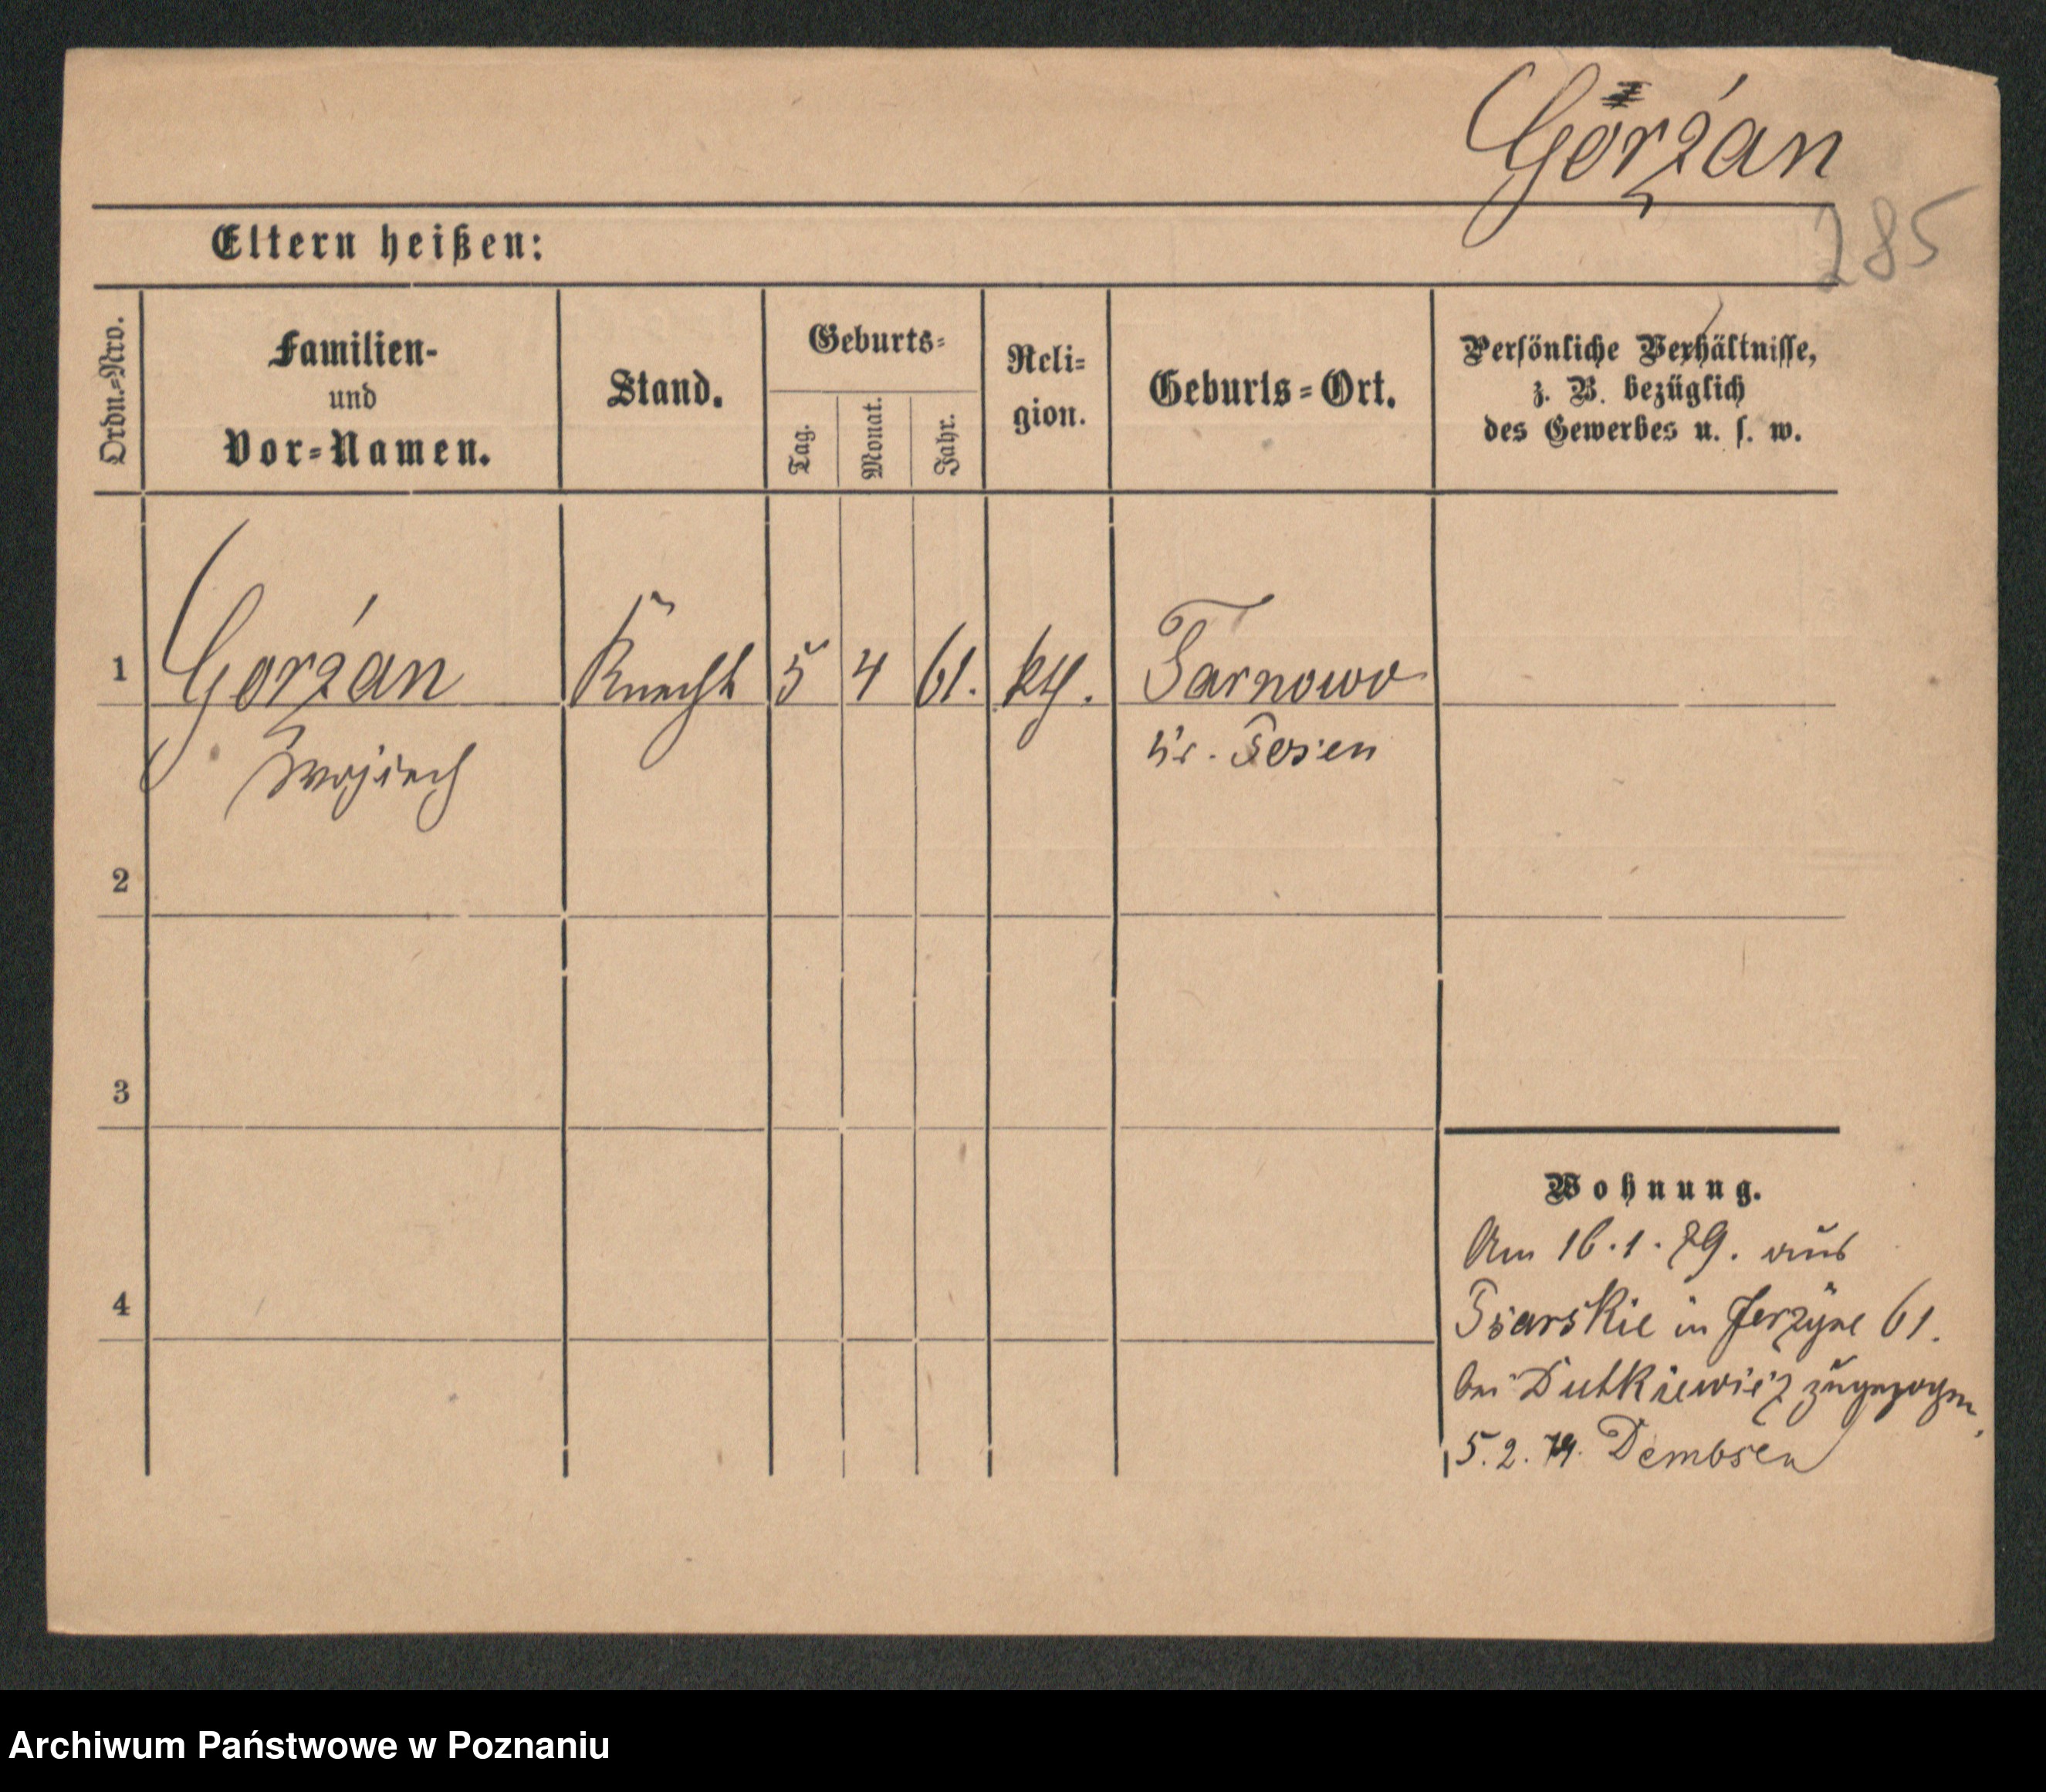 Górzán
285
Eltern heißen:
Ordn.-Nro.
Familien-
und
Vor-Namen.
Stand.
Geburts-
Tag.
Monat.
Jahr.
Reli-
gion.
Geburts-Ort.
Persönliche Verhältnisse,
z. B. bezüglich
des Gewerbes u. s. w.
1 Gorzán Knecht 5 4 61. kth. Tarnowo
Wojciech Kr. Posen
2
3
4
Wohnung.
Am 16.1.79. aus
Psarskie in Jerzyce 61.
bei Dutkiewicz zugezogen,
5.2.79. Dembsen
Archiwum Państwowe w Poznaniu